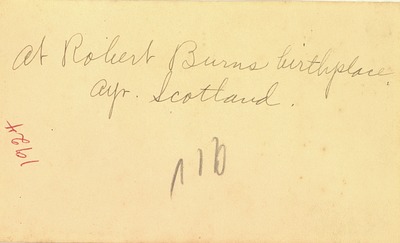 at Robert Burns birthplace.
Ayr. Scotland.
1924
110